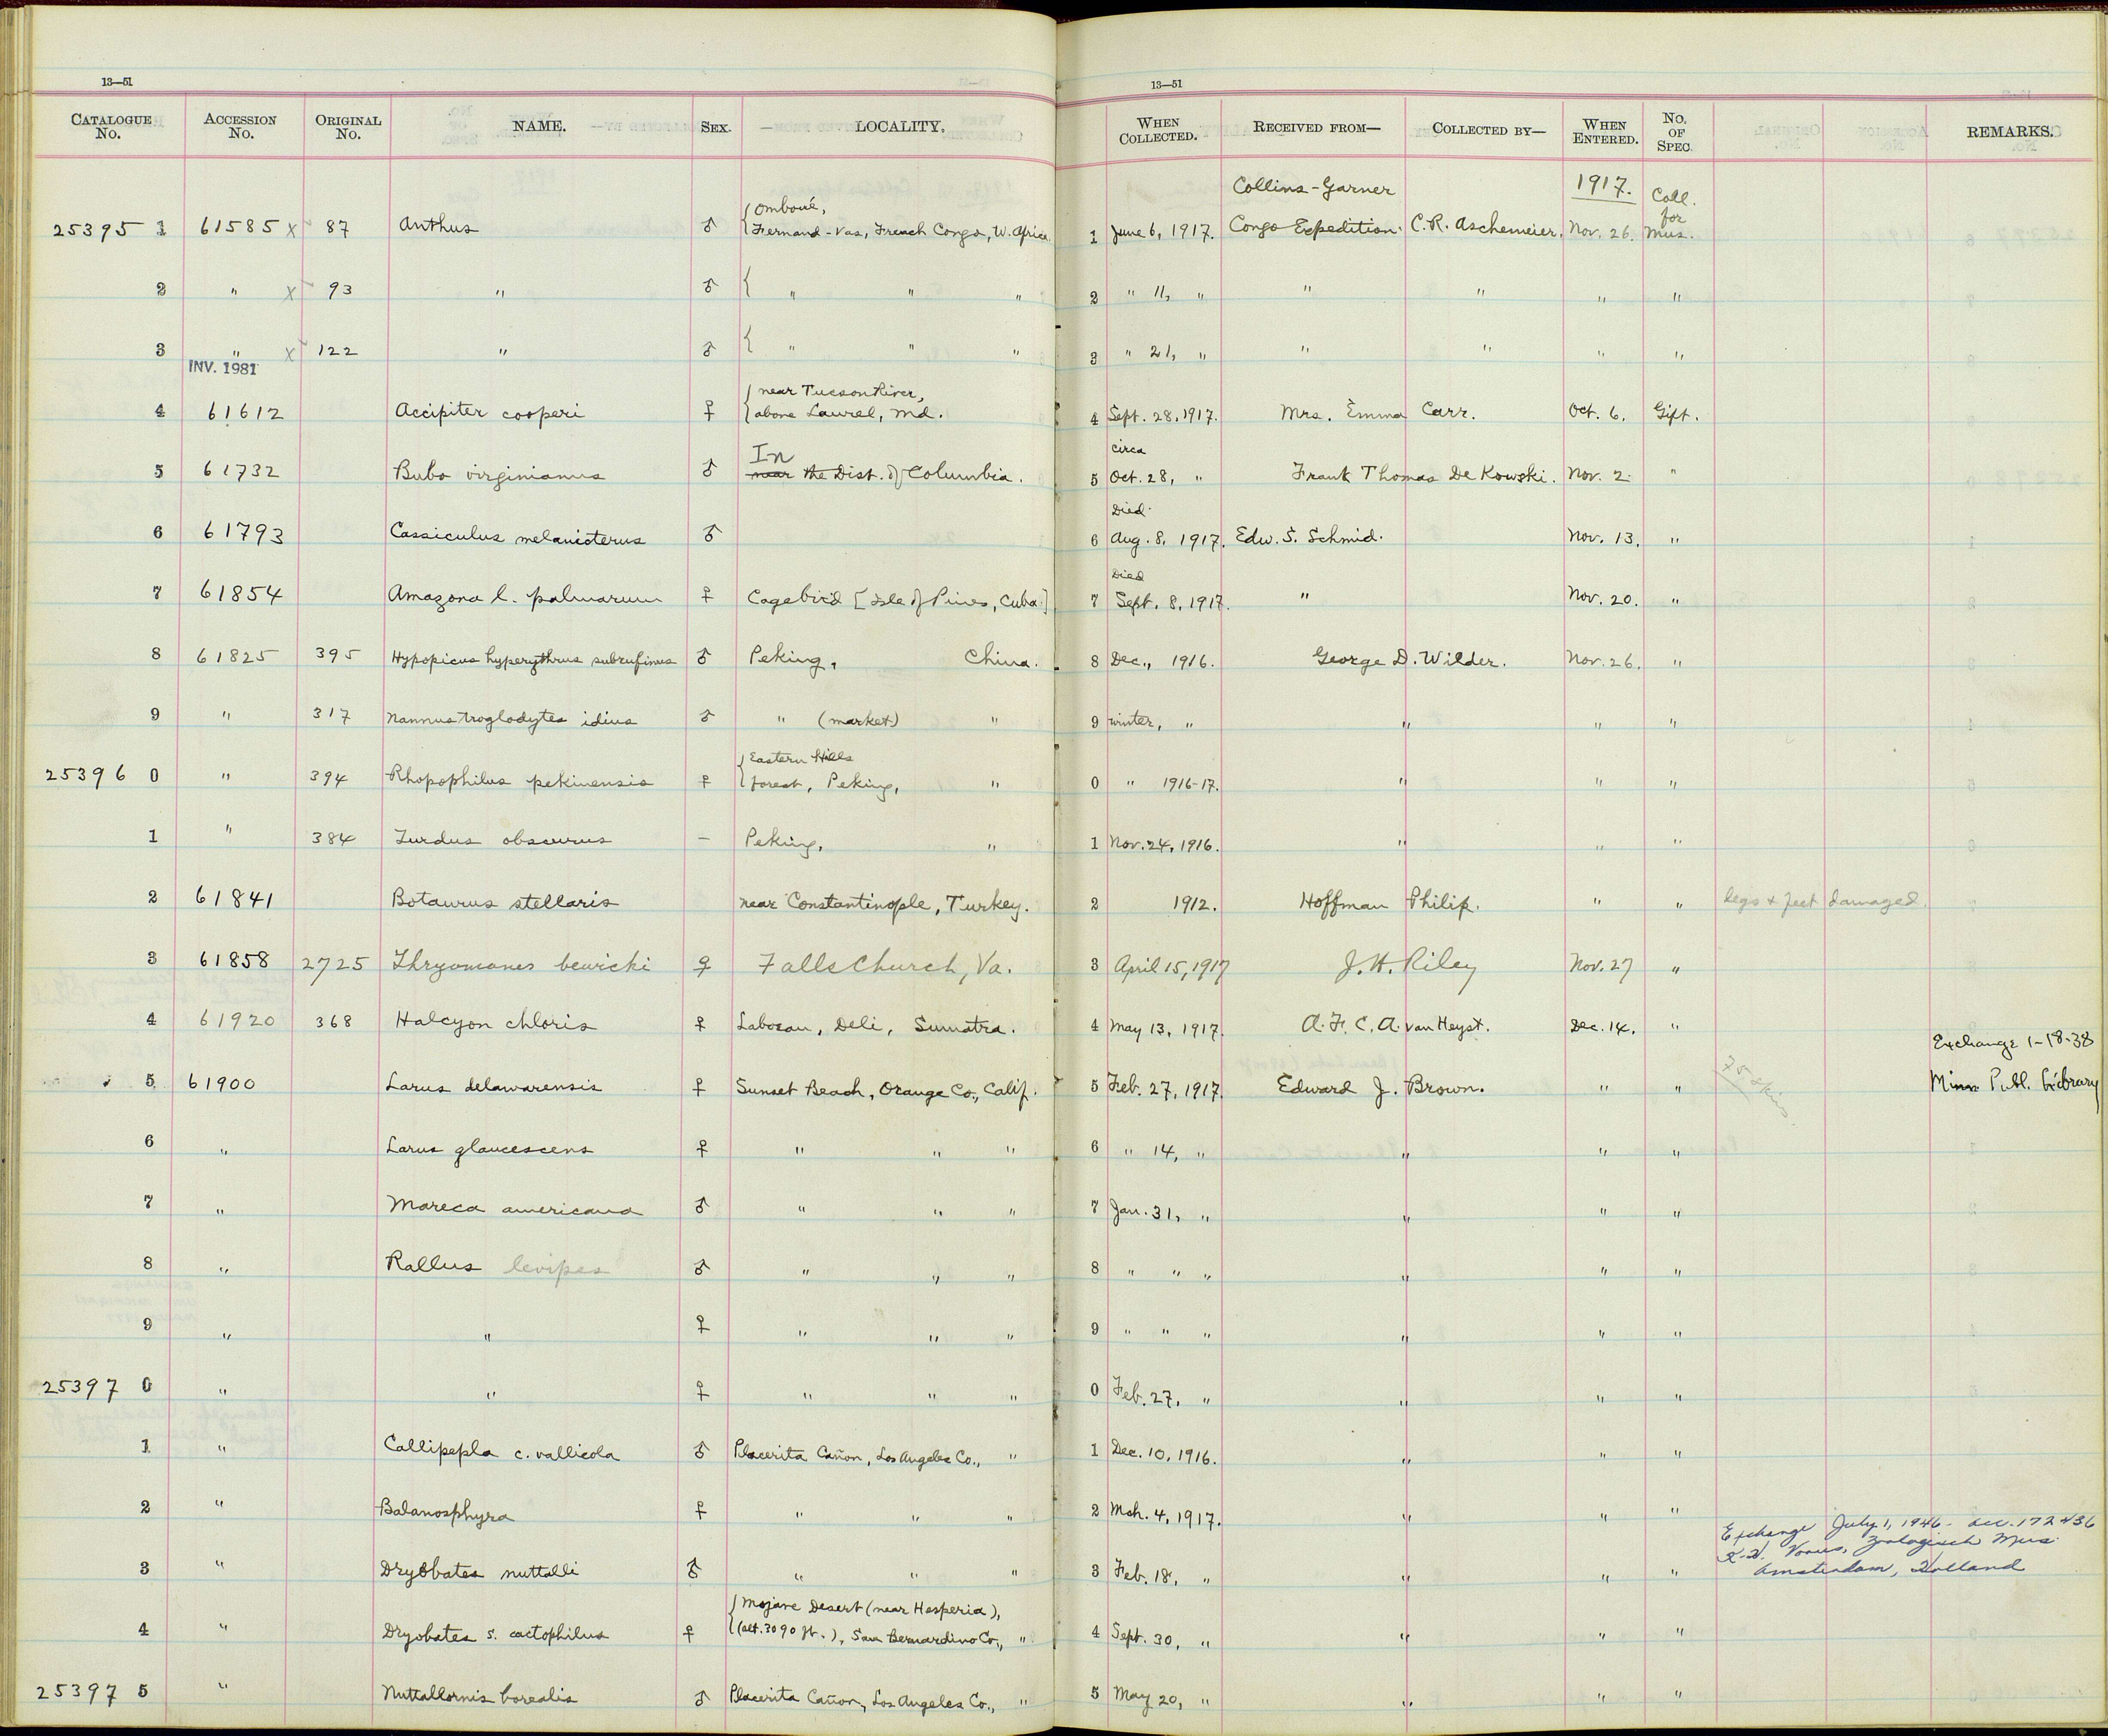 13—51
13—51
CATALOGUE No. ACCESSION No. ORIGINAL No. NAME. SEX. LOCALITY. WHEN COLLECTED. RECEIVED FROM— COLLECTED BY— WHEN ENTERED. No. OF SPEC. REMARKS.
Collins-Garner 1917. Coll.
{Omboué, for
25395 1 61585 x 87 Anthus ♂ {Fernand-Vas, French Congo, W. Africa 1 June 6, 1917. Congo Expedition. C. R. Aschemeier. Nov. 26. Mus.
2 " x 93 " ♂ { " " " 2 " 11, " " " " "
3 " x 122 " ♂ { " " " 3 " 21, " " " " "
INV. 1981
{near Tucson River,
4 61612 Accipiter cooperi ♀ {above Laurel, Md. 4 Sept. 28, 1917. Mrs. Emma Carr. Oct. 6. Gift.
In circa
5 61732 Bubo virginianus ♂ near the Dist. of Columbia. 5 Oct. 28, " Frank Thomas De Kowski. Nov. 2. "
Died
6 61793 Cassiculus melanicterus ♂ 6 Aug. 8, 1917. Edw. S. Schmid. Nov. 13. "
Died
7 61854 Amazona l. palmarum ♀ Cagebird [Isle of Pines, Cuba.] 7 Sept. 8, 1917. " Nov. 20. "
8 61825 395 Hypopicus hyperythrus subrufinus ♂ Peking, China. 8 Dec., 1916. George D. Wilder. Nov. 26. "
9 " 317 Nannus troglodytes idius ♂ " (market) " 9 winter, " " " "
{Eastern Hills
25396 0 " 394 Rhopophilus pekinensis ♀ {forest, Peking, " 0 " 1916-17. " " "
1 " 384 Turdus obscurus – Peking, " 1 Nov. 24, 1916. " " "
2 61841 Botaurus stellaris near Constantinople, Turkey. 2 1912. Hoffman Philip. " " legs & feet damaged.
3 61858 2725 Thryomanes bewicki ♀ Falls Church, Va. 3 April 15, 1917 J. H. Riley Nov. 27 "
4 61920 368 Halcyon chloris ♀ Labosan, Deli, Sumatra. 4 May 13, 1917. A. F. C. A. van Heyst. Dec. 14. "
Exchange 1-18-38
5 61900 Larus delawarensis ♀ Sunset Beach, Orange Co., Calif. 5 Feb. 27, 1917. Edward J. Brown. " " 75 skins. Minn Publ. Library
6 " Larus glaucescens ♀ " " " 6 " 14, " " " "
7 " Mareca americana ♂ " " " 7 Jan. 31, " " " "
8 " Rallus levipes ♂ " " " 8 " " " " " "
9 " " ♀ " " " 9 " " " " " "
25397 0 " " ♀ " " " 0 Feb. 27, " " " "
1 " Callipepla c. vallicola ♂ Placerita Cañon, Los Angeles Co., " 1 Dec. 10, 1916. " " "
2 " Balanosphyra ♀ " " " 2 Mch. 4, 1917. " " "
Exchange July 1, 1946 - acc. 172436
K. H. Voous, Zoologisch Mus
3 " Dryobates nuttalli ♂ " " " 3 Feb. 18, " " " " Amsterdam, Holland
{Mojave Desert (near Hesperia),
4 " Dryobates s. cactophilus ♀ {(alt. 3090 ft.), San Bernardino Co., " 4 Sept. 30, " " " "
25397 5 " Nuttallornis borealis ♂ Placerita Cañon, Los Angeles Co., " 5 May 20, " " " "